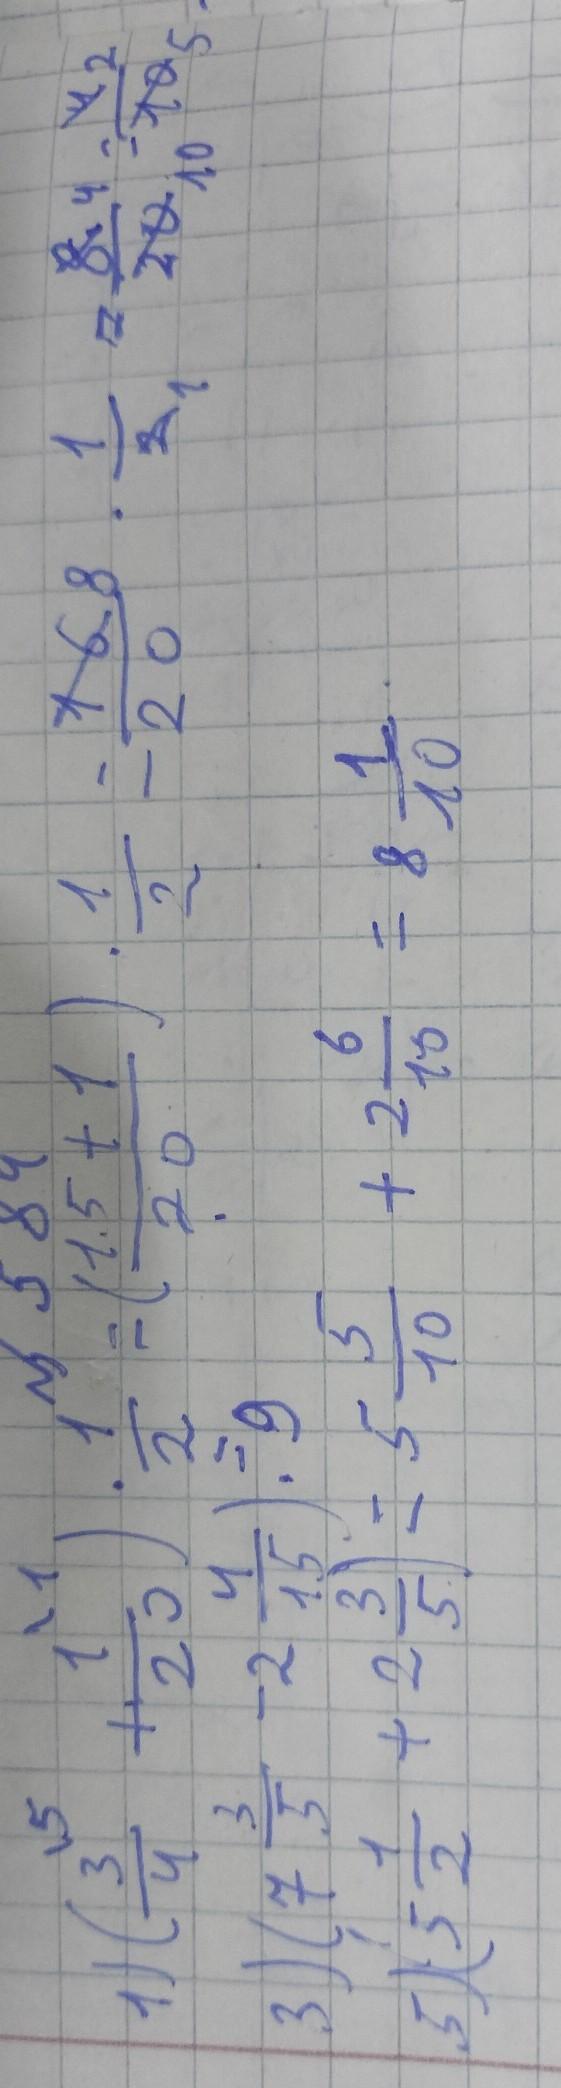 № 584
1) (3/4 \5 + 1/20 \1) · 1/2 = (15+1)/20) · 1/2 = 16 8/20 · 1/2 1 = 8 4/20 10 = 4 2/10 5
3) (7 3/5 - 2 4/15) · 9 =
5) (5 1/2 + 2 3/5) = 5 5/10 + 2 6/10 = 8 1/10